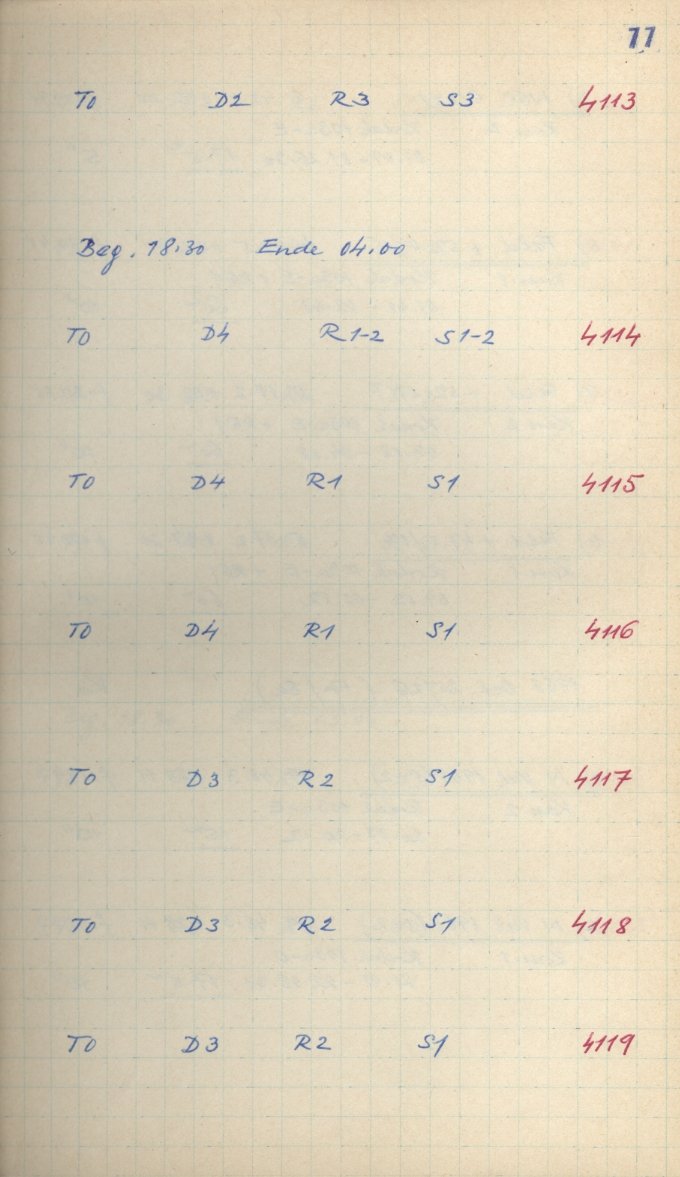 77
To D2 R3 S3 4113
Beg. 18:30 Ende 04.00
To D4 R1-2 S1-2 4114
To D4 R1 S1 4115
To D4 R1 S1 4116
To D3 R2 S1 4117
To D3 R2 S1 4118
To D3 R2 S1 4119